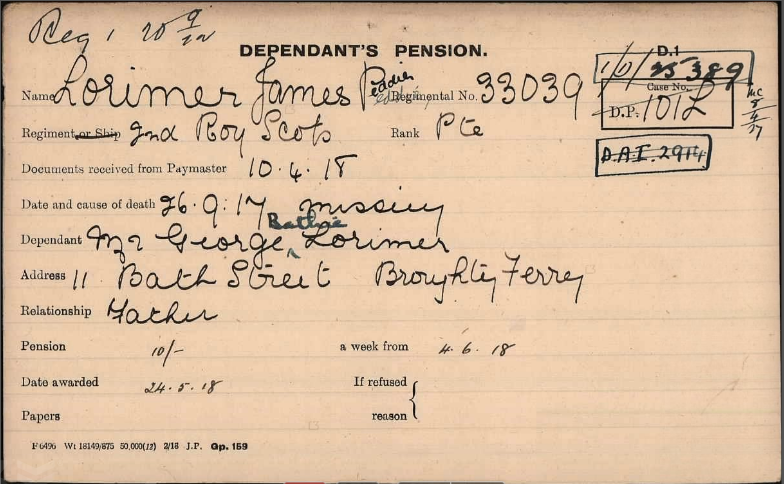 Reg 1 20 9/22
DEPENDANT'S PENSION.
D.1
1/D/ 25389
Case No.
Name Lorimer James Peddie Regimental No. 33039
D.P. 101L
Regiment or Ship 2nd Roy Scots Rank Pte
Documents received from Paymaster 10.4.18
D.A.I. 2914
Date and cause of death 26.9.17 missing
Bathie
Dependant Mr George Lorimer
Address 11 Bath Street Broughty Ferry
Relationship Father
Pension 10/- a week from 4.6.18
Date awarded 24.5.18 If refused
Papers reason
F 6496 Wt 18149/875 50,000(12) 2/18 J.P. Gp. 159